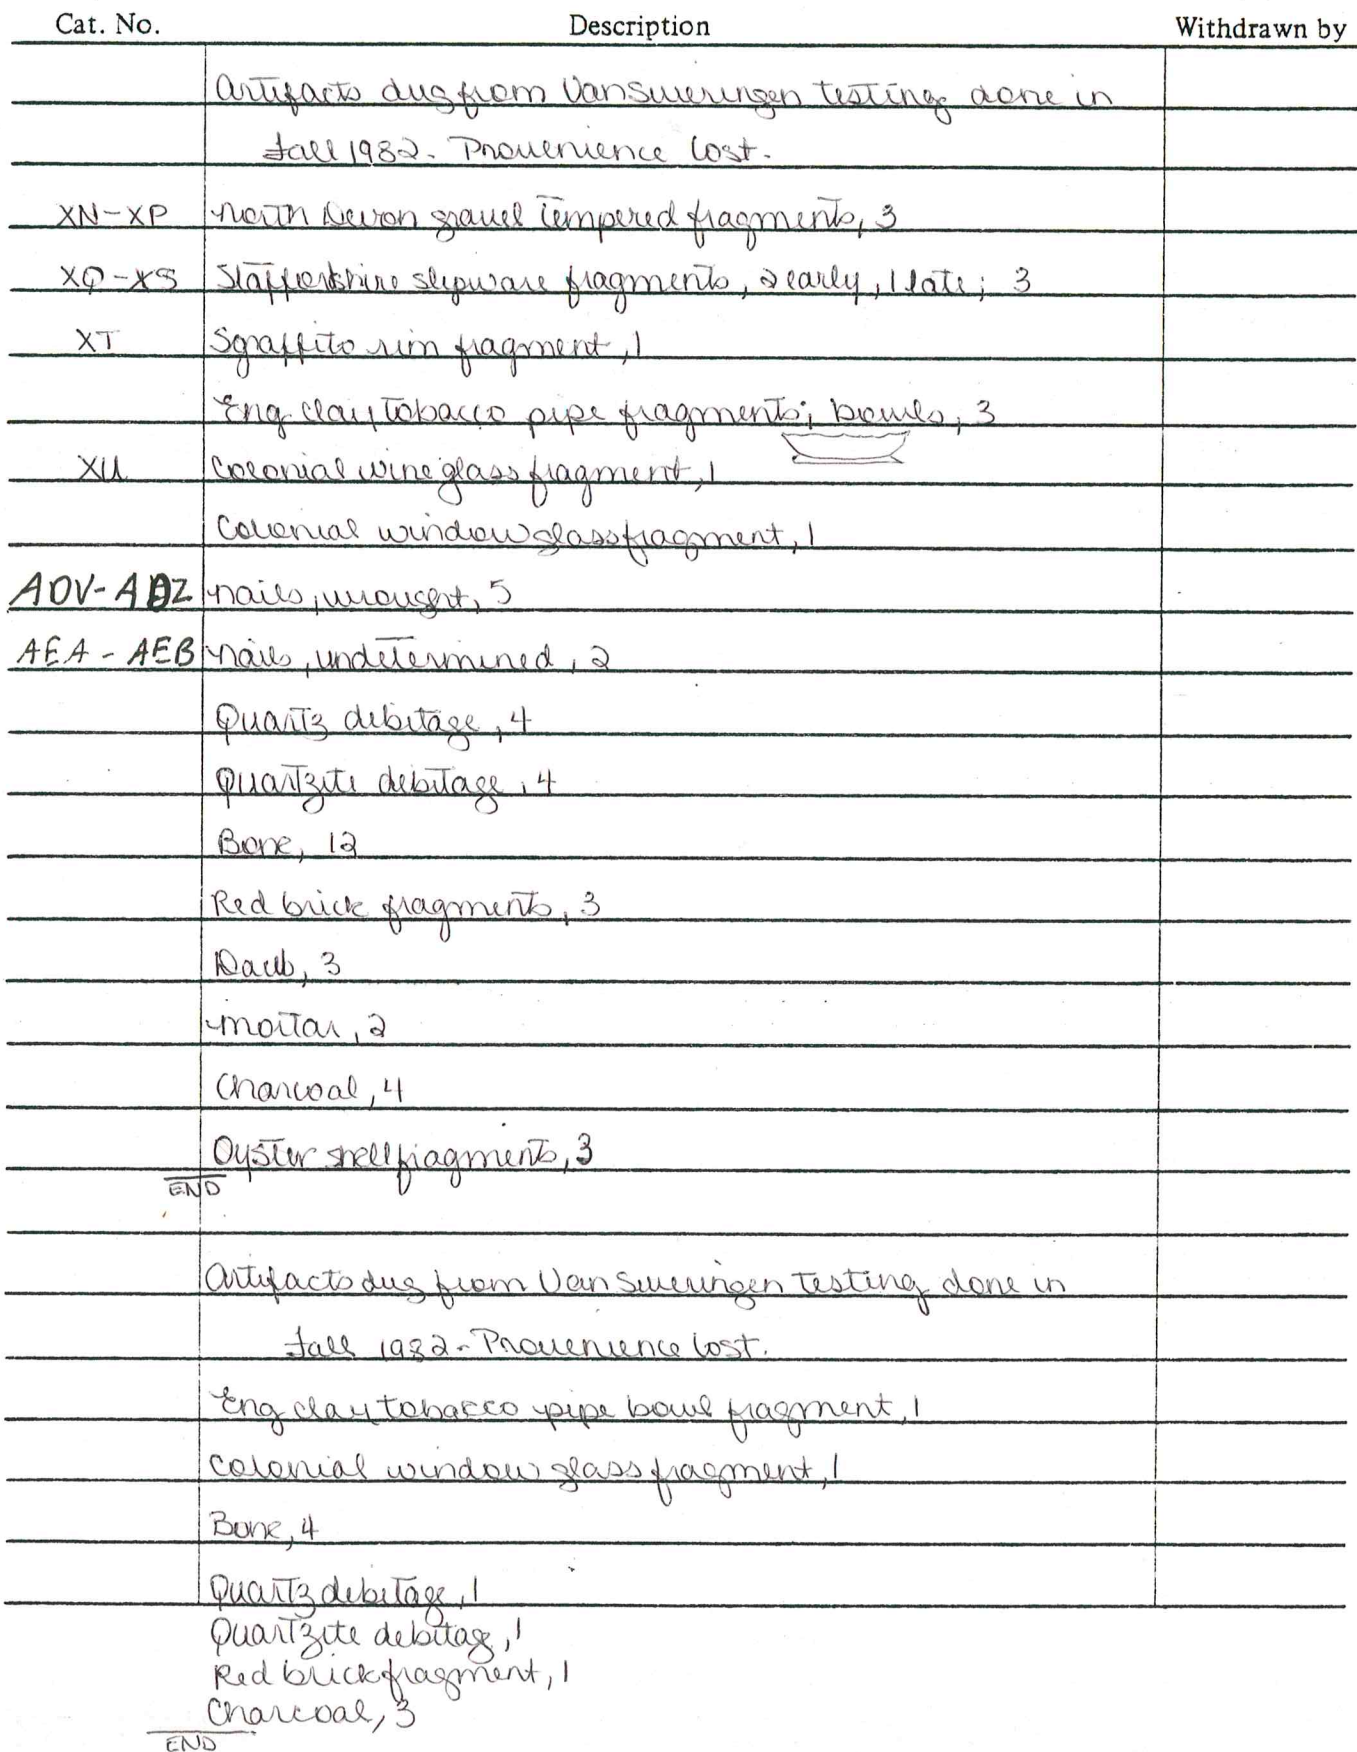 Cat. No. Description Withdrawn by
Artifacts dug from Van Sweringen testing done in
Fall 1982. Provenience lost.
XN-XP North Devon gravel tempered fragments, 3
XQ-XS Staffordshire slipware fragments, 2 early, 1 late; 3
XT Sgraffito rim fragment, 1
Eng. clay tobacco pipe fragments; bowls, 3
XU Colonial wine glass fragment, 1
Colonial window glass fragment, 1
ADV-ADZ nails, wrought, 5
AEA-AEB nails, undetermined, 2
Quartz debitage, 4
Quartzite debitage, 4
Bone, 12
Red brick fragments, 3
Daub, 3
mortar, 2
Charcoal, 4
Oyster shell fragments, 3
END
Artifacts dug from Van Sweringen testing done in
Fall 1982. Provenience lost.
Eng clay tobacco pipe bowl fragment, 1
Colonial window glass fragment, 1
Bone, 4
Quartz debitage, 1
Quartzite debitage, 1
Red brick fragment, 1
Charcoal, 3
END